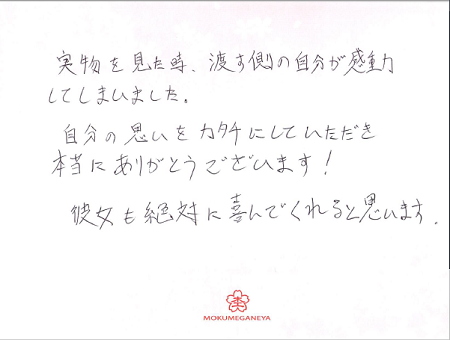 実物を見た時、渡す側の自分が感動
してしまいました。
自分の思いをカタチにしていただき
本当にありがとうございます！
彼女も絶対に喜んでくれると思います.
MOKUMEGANEYA